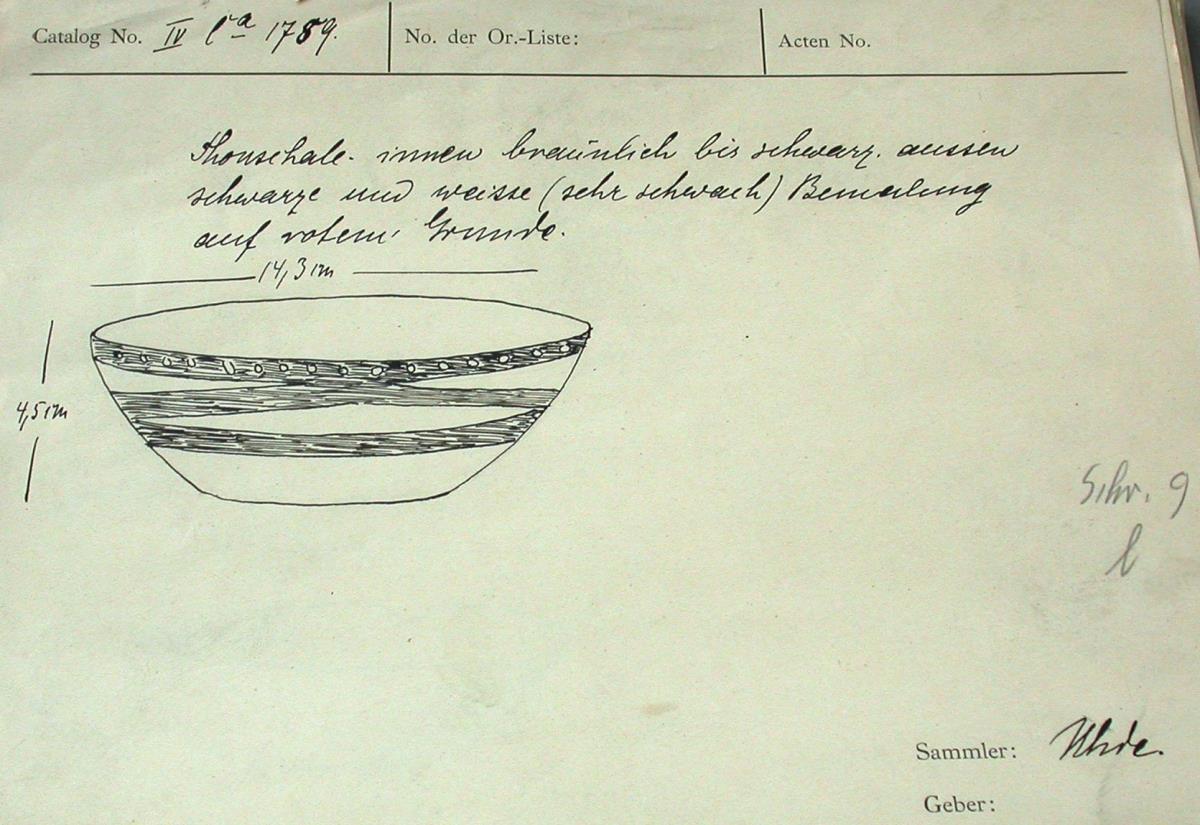 Catalog No. IV Ca 1789. No. der Or.-Liste: Acten No.
Thonschale. innen bräunlich bis schwarz. aussen
schwarze und weisse (sehr schwach) Bemalung
auf rotem Grunde.
14,3 cm
4,5 cm
Schr. 9
l
Sammler: Uhde.
Geber: